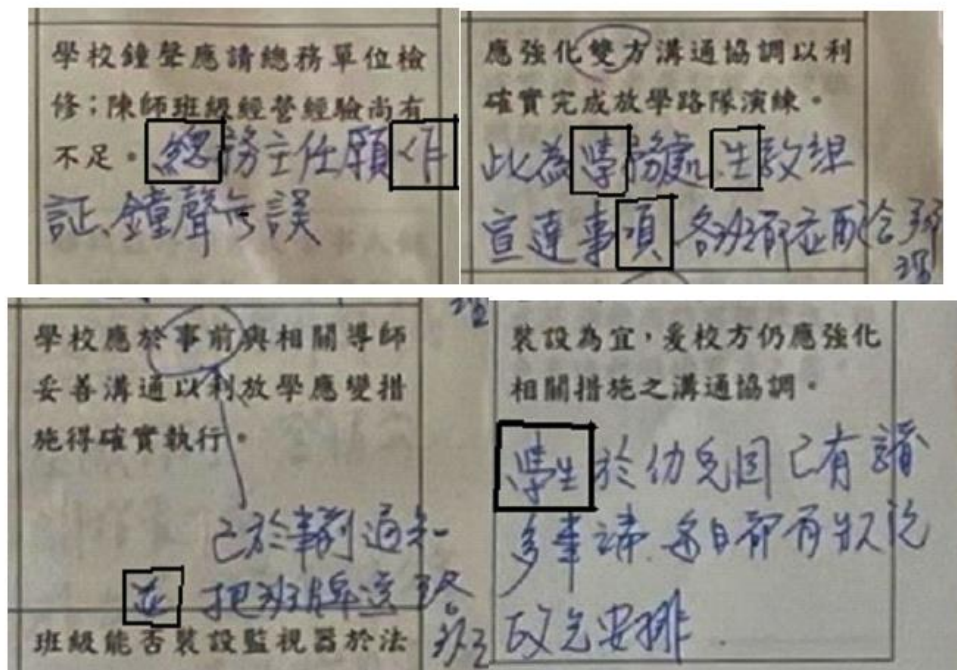 學校鐘聲應請總務單位檢
修;陳師班級經營經驗尚有
不足。總務主任願作
証、鐘聲無誤
應強化雙方溝通協調以利
確實完成放學路隊演練。
此為學務處生教組
宣達事項 各班都應配合辦
理
學校應於事前與相關導師
妥善溝通以利放學應變措
施得確實執行。
已於事前通知
並把班牌送
班級能否裝設監視器於法
裝設為宜,爰校方仍應強化
相關措施之溝通協調。
學生於幼兒園已有諸
多事
安排